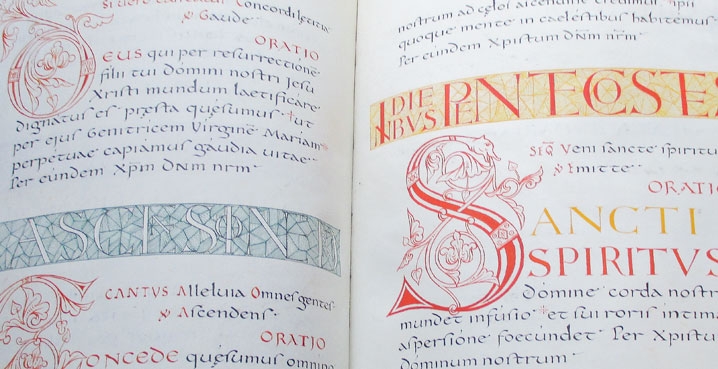 Concordi lætitia
& Gaude
ORATIO
DEUS qui per resurrectione
filii tui Domini nostri Jesu
Xristi mundum laetificare
dignatus es præsta quęsumus ut
per ejus Genitricem Virginē Mariam
perpetuae capiamus gaudia vitae
Per eundem Xpm Dnm nrm
ASCENSION
CANTUS Alleluia Omnes gentes
& Ascendens
ORATIO
CONCEDE quęsumus omnipo
nostrum ad cęlos ascendisse
quoque mente in caelestibus habitemus
Per eundem Xpistum Dnm nrm
IN DIEBUS PENTECOSTE
Veni sancte spiritu
& Emitte
ORATIO
SANCTI
SPIRITUS
Domine corda nostr
mundet infusio et sui roris intima
aspersione foecundet Per Xpistu
Dominum nostrum